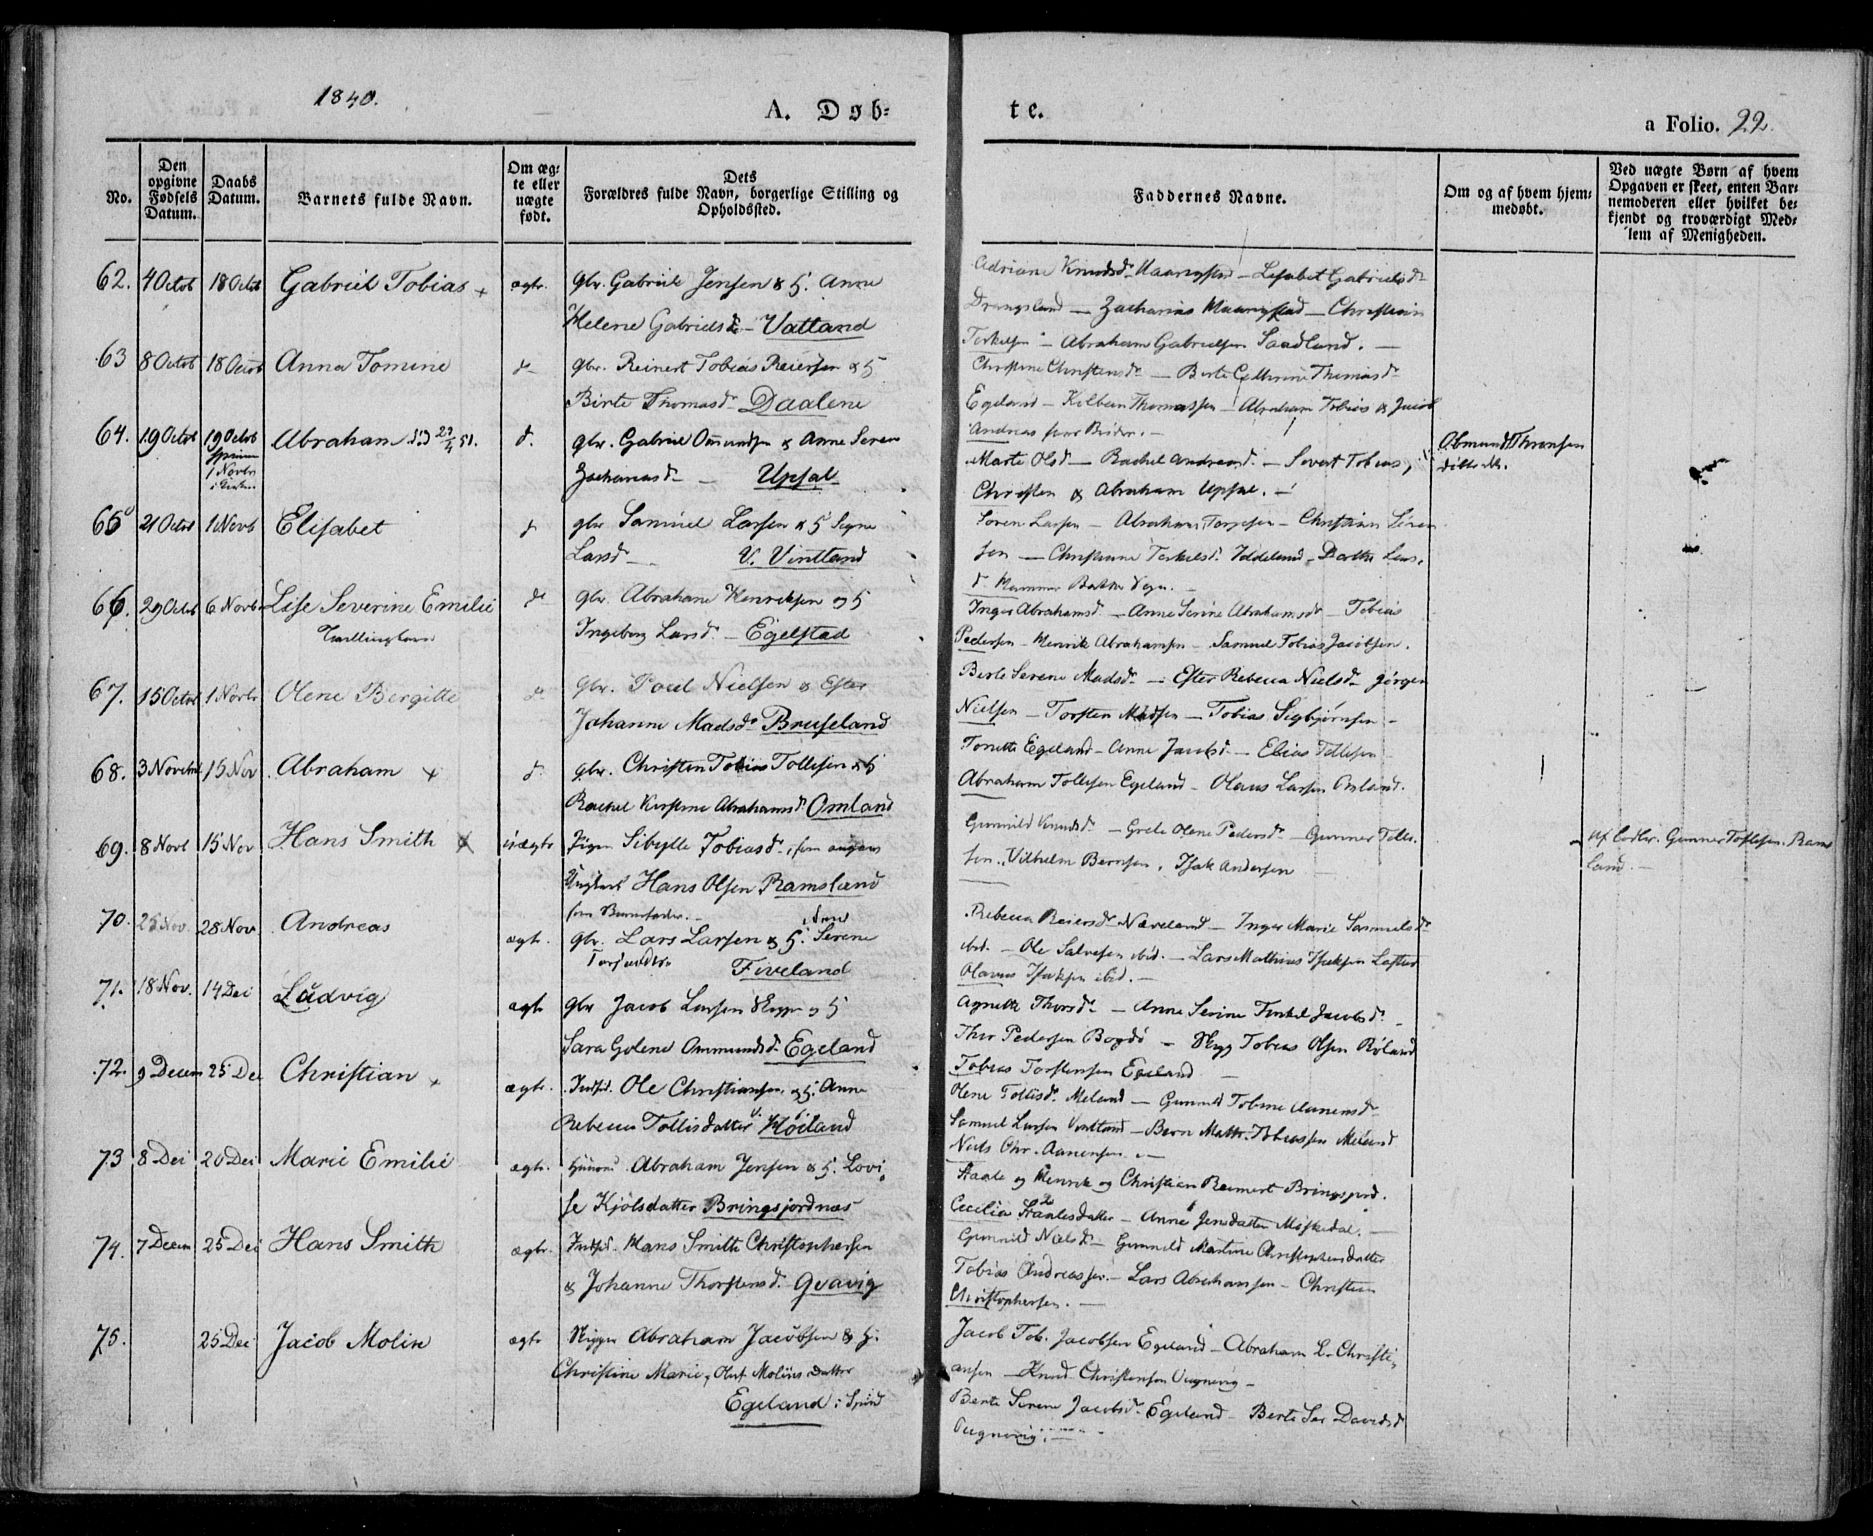 1840.
A. Døb-
te.
a Folio. 22.
No.
Den opgivne Fødsels Datum.
Daabs Datum.
Barnets fulde Navn.
Om ægte eller uægte født.
Dets Forældres fulde Navn, borgerlige Stilling og Opholdssted.
Faddernes Navne.
Om og af hvem hjemmedøbt.
Ved uægte Børn af hvem Opgaven er skeet, enten Barnemoderen eller hvilket bekjendt og troværdigt Medlem af Menigheden.
62. 4 Octob 18 Octob Gabriel Tobias + ægte. gbr. Gabriel Jensen & H. Anne
Helene Gabrielsd. – Vatland
Adriane Knudsd. – Lisabet Gabrielsd.
Drangsland – Zacharias – Christian
Terkelsen – Abraham Gabrielsen Saadland. –
63 8 Octob 18 Octob Anna Tomine d. gbr. Reinert Tobias Reiersen & H
Birte Thomasd. Daalene
Christine Christensd. – Berte Cathrine Thomasd.
Egeland – Thomassen – Abraham Tobias & Jacob
Andreas –
64. 19 Octob 19 Octob Abraham d. gbr. Gabriel Omundsen & Anne Seren
1 Novbr
Zachariasd. – Upsal
Marte Olsd. – Rachel Andreasd. – Sivert Tobias,
Christen & Abraham Upsal. –
65 21 Octob 1 Novb Elisabet d. gbr Samuel Larsen & H Signe
Larsd. – V. Vintland
Søren Larsen – Abraham – Christian Søren
sen – Christiane Terkelsd. – Dorthe Lars
66. 29 Octob 6 Novbr Lise Severine Emilie d. gbr. Abraham Henriksen og H
Tvillingbarn
Ingeborg Larsd. – Egelstad
Inger Abrahamsd. – Anne Serine Abrahamsd. – Tobias
Pedersen – Henrik Abrahamsen – Samuel Tobias Jacobsen.
67. 15 Octob 1 Novbr Olene Bergitte d. gbr. Poul Nielsen & Ester
Johanne Madsd. Bruseland
Berte Serene Madsd. – Ester Rebecca Nielsd. Jørgen
Nielsen – Torsten Madsen – Tobias Sigbjørnsen –
68. 3 Novemb 15 Nov Abraham + d. gbr. Christen Tobias Tollisen & H
Rachel Kirstine Abrahamsd. Omland
Tonette Egeland – Anne Jacobsd. – Elias Tollisen
Abraham Tollisen Egeland – Olaus Larsen Omland.
69. 8 Novb 15 Nov Hans Smith uægte Pigen Sibylle Tobiasd., som angav
Ungkarl Hans Olsen Ramsland
som Barnefader. –
Gunnild Knudsd. – Grete Olene Pedersd. – Gunner Tolli
sen. Vilhelm Berntsen, Isak Andersen –
af Gunner Tollefsen Rams
land. –
70. 25 Nov. 28 Nov Andreas ægt. gbr. Lars Larsen & H. Serene
Fiveland
Rebecca Reiersd. Næveland – Inger Marie Samuelsd.
ibid. – Ole Salvesen ibid. – Lars Mathias Isaksen
Olavus Isaksen ibid. –
71. 18 Nov. 14 Dec Ludvig ægt. gbr Jacob Larsen & H
Sara Golene Ommundsd. Egeland
Agnethe Thorsd. – Anne Serine Jacobsd. –
Thor Pedersen – Tobias Olsen
Tobias Torstensen Egeland –
72. 9 Decem 25 Dec Christian + ægt. Indsid. Ole Christiansen, og H. Anne
Rebecca Tollisdatter V. Høiland
Olene Tollisd. Meland – Gunnild Tobine Aanensd.
Samuel Larsen Vintland – Bern Math. Tobiassen Meland
Niels Chr. Aanensen. –
73 8 Dec 20 Dec Marie Emilie ægt. Abraham Jensen & H. Lovi
se Kjølsdatter Bringsjordnæs
Staale og Henrik og Christian Reinert Bringsjord.
Cecilia Staalesdatter – Anne Jensdatter Møskedal. –
74. 7 Decem 25 Dec Hans Smith ægt. Indsid. Hans Smith Christophersen
& Johanne Thorstensd. Gvavig
Gunnild Nielsd. – Gunnild Martine Christophersdatter
Tobias Andreassen. – Lars Abrahamsen – Christian
Christophersen. –
75. 25 Dec Jacob Molin ægt Skipper Abraham Jacobsen & H.
Christine Marie, Oluf Molins Datter
Egeland i Spind
Jacob Tob. Jacobsen Egeland – Abraham L. Christi
ansen – Knud Christensen –
Berte Serene Jacobsd. Egeland – Berte Davidsd